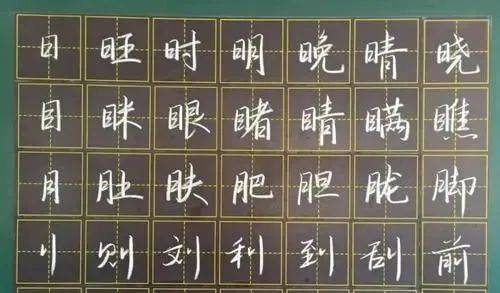 日旺时明晚晴晓
目眯眼睹睛瞒瞧
月肚肤肥胆胧脚
刂则刘利到刮前